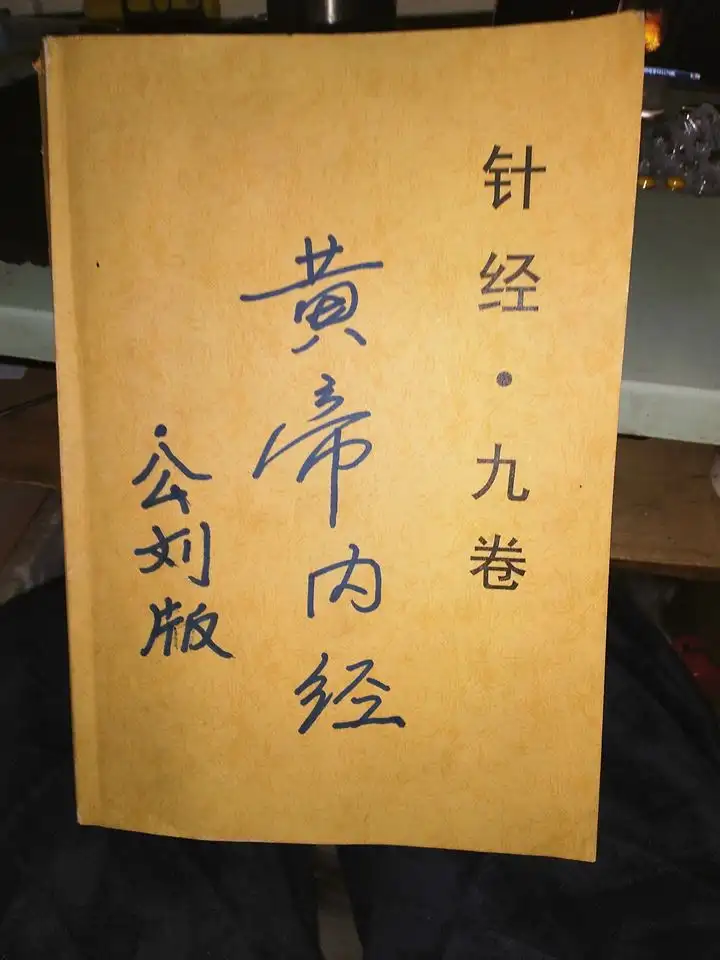 针经·九卷
黄帝内经
·公刘版